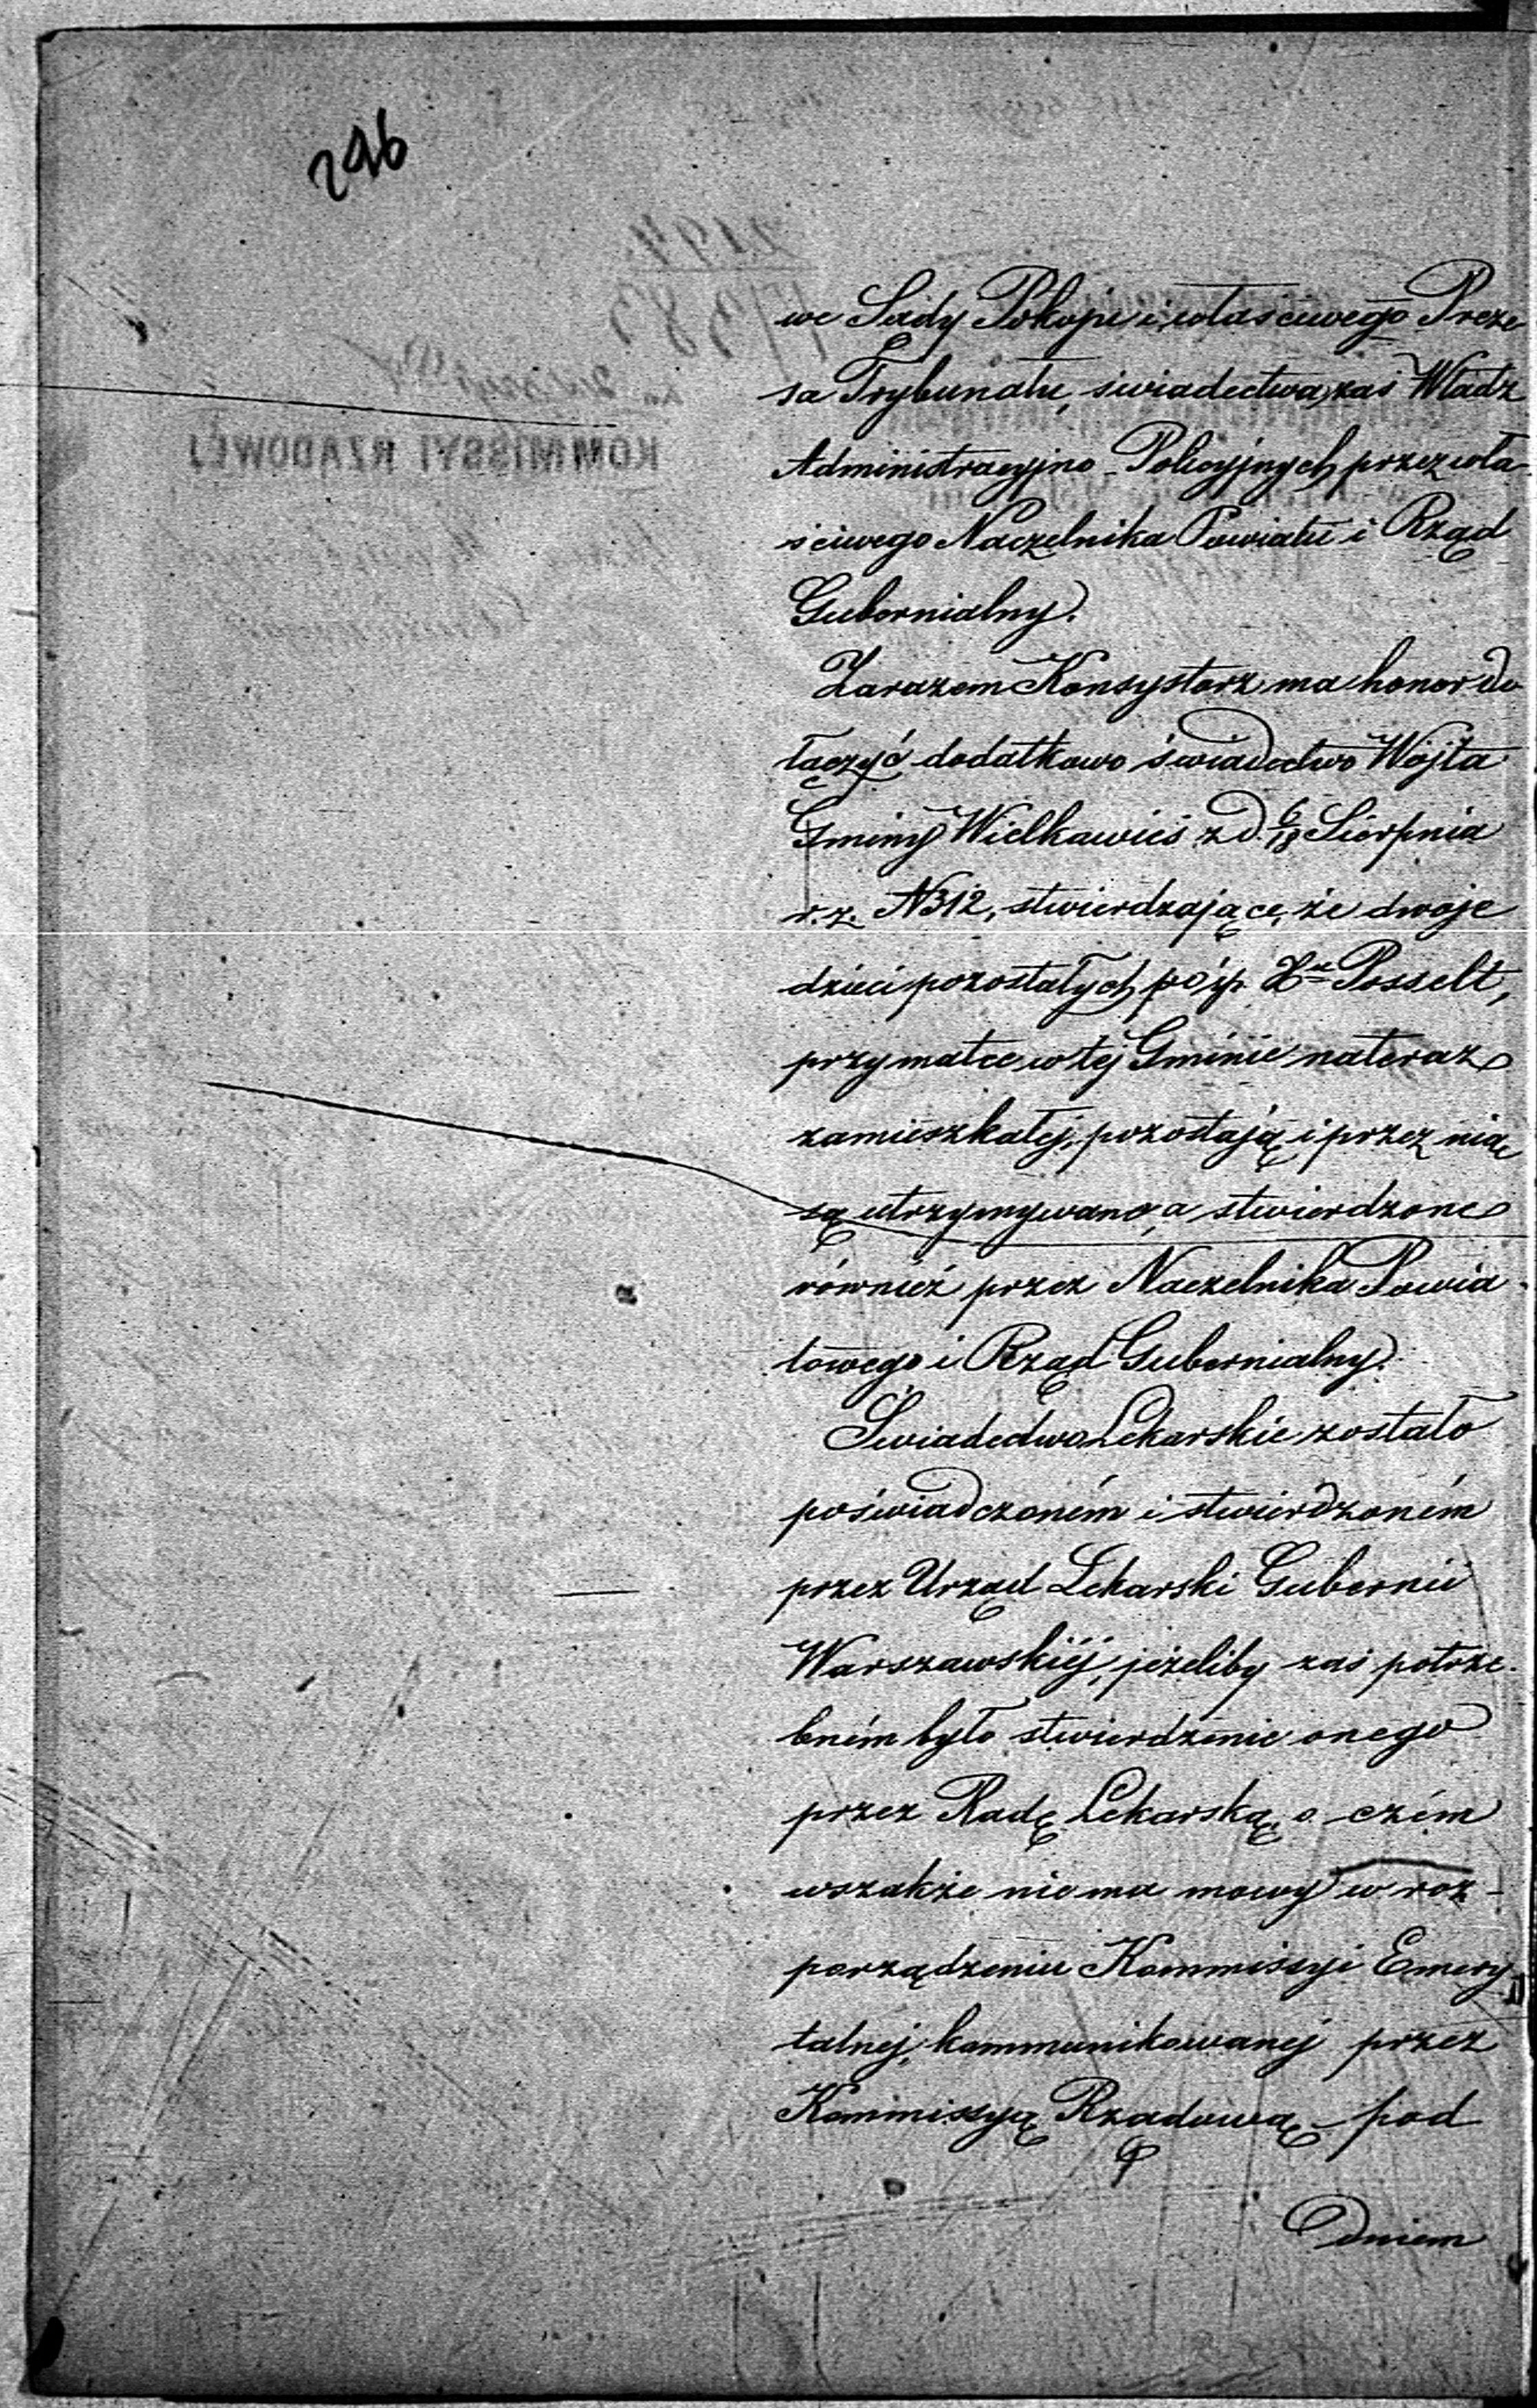 246
we Sądy Pokoju i właściwego Preze-
sa Trybunału, świadectwa zaś Władz
Administracyjno-Policyjnych przez wła-
ściwego Naczelnika Powiatu i Rząd
Gubernialny.
Zarazem Konsystorz ma honor do
łączyć dodatkowo świadectwo Wójta
Gminy Wielkawieś z d. 6/18 Sierpnia
r. z. N 312, stwierdzające, że dwoje
dzieci pozostałych po śp. Xu Posselt,
przy matce w tej Gminie na teraz
zamieszkałej, pozostają i przez nią
są utrzymywane, a stwierdzone
również przez Naczelnika Powia-
towego i Rząd Gubernialny.
Świadectwo Lekarskie zostało
poświadczoném i stwierdzoném
przez Urząd Lekarski Gubernii
Warszawskiéj, jeżeliby zaś potrze-
bném było stwierdzenie onego
przez Radę Lekarską, o czém
wszakże nie ma mowy w roz-
porządzeniu Kommissyi Emery-
talnej, kommunikowanej przez
Kommissyą Rządową pod
Dniem
2194
17383
KOMMISSYI RZĄDOWÉJ